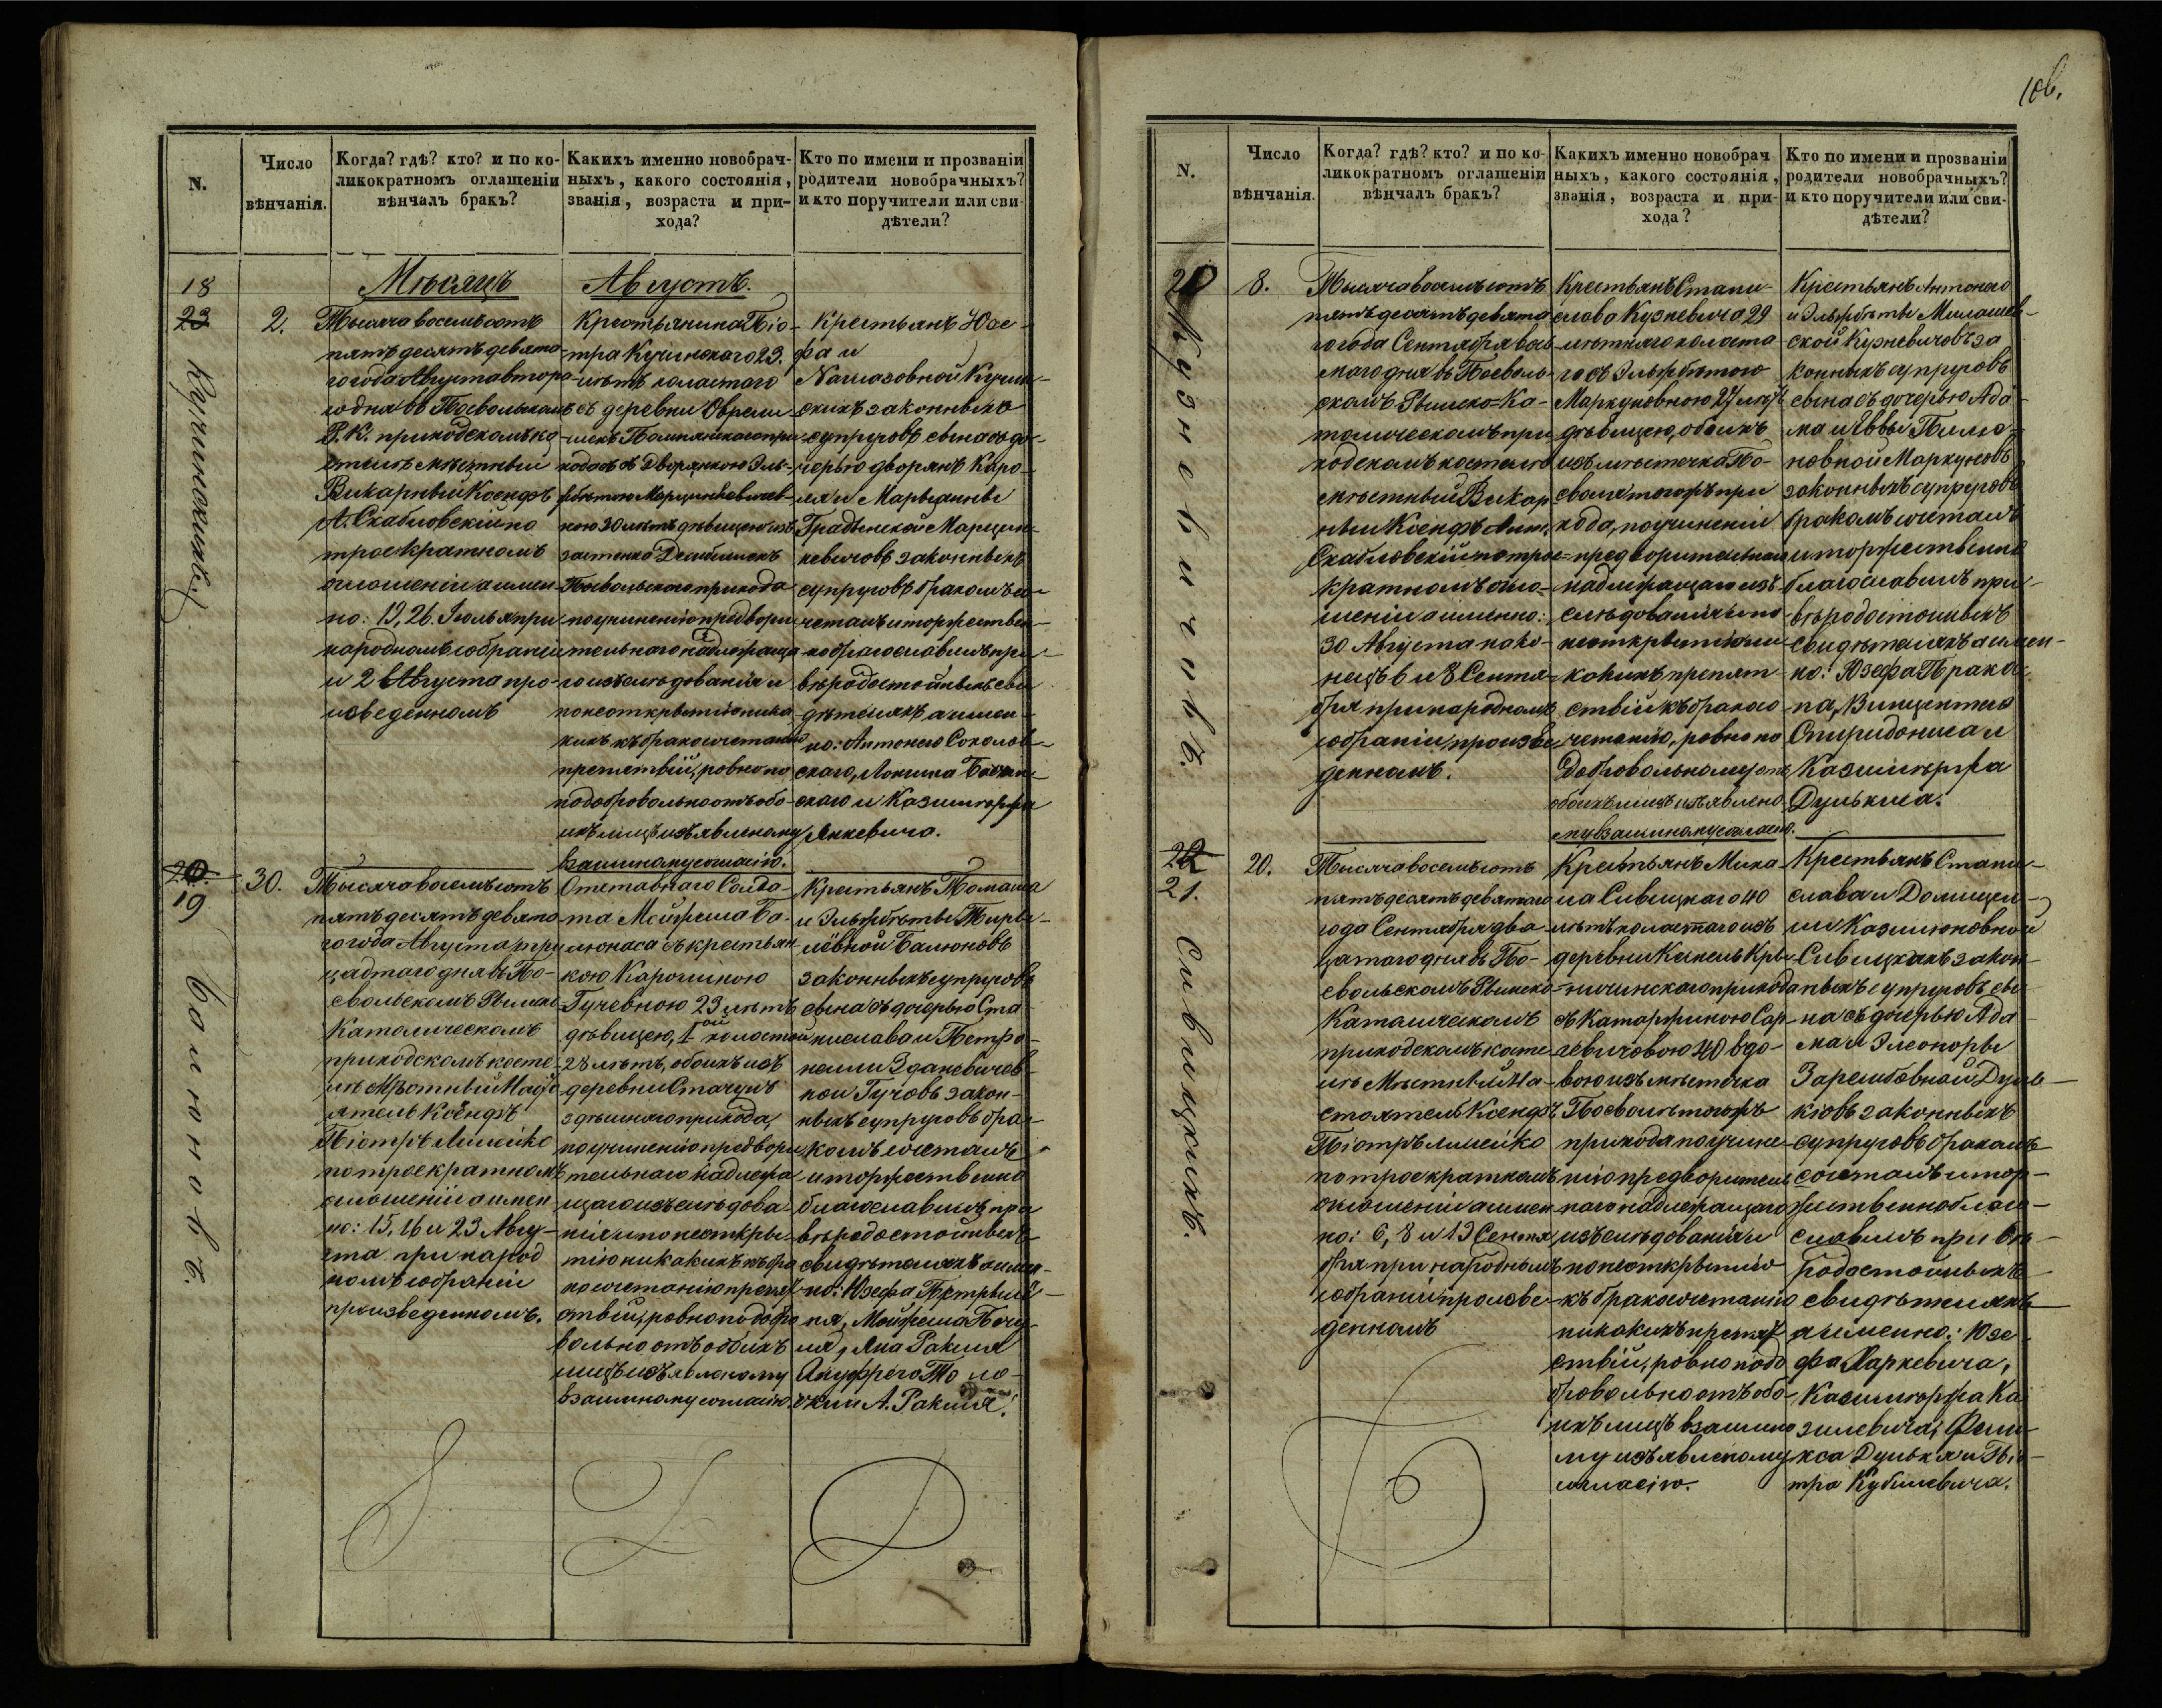 N.
Число
вѣнчанія.
Когда? гдѣ? кто? и по ко-
ликократномъ оглашеніи
вѣнчалъ бракъ?
Какихъ именно новобрач-
ныхъ, какого состоянія,
званія, возраста и при-
хода?
Кто по имени и прозваніи
родители новобрачныхъ?
и кто поручители или сви-
дѣтели?
18
23
2.
Кучинскихъ
Мѣсяцъ
Тысяча восемьсотъ
пятьдесятъ девято-
го года Августа втора-
го дня въ Посвольскомъ
Р. К. приходскомъ ко-
стелѣ мѣстный
Викарный Ксендзъ
А. Скабловскій по
троекратномъ
оглашеніи а имен
но: 19, 26 Іюля при
народномъ собраніи
и 2 Августа про-
изведенномъ
Августъ.
Крестьянина Піо-
тра Кучинского 23.
лѣтъ холостаго
съ деревни
при-
хода съ Дворянкою Эль-
жбѣтою Марцинкевичев-
ною 30 лѣтъ дѣвицею изъ
застенка
Посвольского прихода
по учиненію предвори
тельнаго надлежаща
го изслѣдованія и
по неоткрытію ника
кихъ къ бракосочетанію
препятствій, ровно по
подобровольно отъ обо-
ихъ лицъ изъявленому
взаимному согласію.
Крестьянъ Юзе-
фа и
Кучин-
скихъ законныхъ
супруговъ сына съ до-
черью дворянъ Каро-
ля и Марыанны
Градынской Марцин-
кевичовъ законныхъ
супруговъ бракомъ со-
четалъ и торжествен-
но благославилъ при
вѣродостойныхъ сви
дѣтеляхъ а имен-
но: Антонего Соколов-
скаго, Лонгина
скаго и Казимержа
Янкевича.
20.
19
30.
Балюновъ.
Тысяча восемьсотъ
пятьдесятъ девято
го года Августа три
цадтаго дня въ По-
свольскомъ Римско
Католическомъ
приходскомъ косте
лѣ Мѣстный Насто
ятель Ксёндзъ
Піотръ Лимейко
по троекратномъ
оглашеніи а имен
но: 15, 16 и 23 Авгу-
ста при народ
номъ собраніи
произведенномъ.
Отставнаго Солда-
та Мойжеша Ба-
люнаса съ крестьян-
кою Каролиною
Гучевною 23 лѣтъ
дѣвицею, 1ой холостой
28 лѣтъ, обоихъ изъ
деревни Стачунъ
здѣшняго прихода,
по учиненію предвори
тельнаго надлежа
щаго изслѣдова
нія и по неоткры-
тію никакихъ къ бра
косочетанію препят
ствій, ровно по добро
вольно отъ обоихъ
лицъ изъявленому
взаимному согласію
Крестьянъ Томаша
и Эльжбѣты
Балюновъ
законныхъ супруговъ
сына съ дочерью Ста
нислава и Петро-
нелли Зданевичов-
ной Гучовъ закон-
ныхъ супруговъ бра-
комъ сочеталъ
и торжественно
благославилъ при
вѣродостойныхъ
свидѣтеляхъ а имен-
но: Юзефа
ня, Мойжеша
ля, Яна Ракшя
Ануфрего
А. Ракшя.
106.
N.
Число
вѣнчанія.
Когда? гдѣ? кто? и по ко-
ликократномъ оглашеніи
вѣнчалъ бракъ?
Какихъ именно новобрач
ныхъ, какого состоянія,
званія, возраста и при-
хода?
Кто по имени и прозваніи
родители новобрачныхъ?
и кто поручители или сви-
дѣтели?
20
8.
Кузневичовъ.
Тысяча восемьсотъ
пятьдесятъ девята
го года Сентября вось
маго дня въ Посволь-
скомъ Римско=Ка-
толическомъ при
ходскомъ костелѣ
мѣстный Викар
ный Ксендзъ Ант.
Скабловскій по трое=
кратномъ огло-
шеніи а именно:
30 Августа нако-
нецъ 6 и 8 Сентя-
бря при народномъ
собраніи произве
денномъ.
Крестьянъ Стани-
слава Кузневича 29
лѣтняго холоста
го съ Эльжбѣтою
Маркуновною 27 лѣтъ
дѣвицею, обоихъ
изъ мѣстечка По-
своля тогожъ при
хода, по учиненіи
предворительнаго
надлежащаго изъ
слѣдованія и по
неоткрытію ни
какихъ препят
ствій къ бракосо
четанію, ровно по
добровольному отъ
обоихъ лицъ изъявлено
му взаимному согласію.
Крестьянъ Антонего
и Эльжбѣты Милашев-
ской Кузневичовъ за
конныхъ супруговъ
сына съ дочерью Ада
ма и Еввы
новной Маркуновъ
законныхъ супруговъ
бракомъ сочеталъ
и торжественно
благославилъ при
вѣродостойныхъ
свидѣтеляхъ а имен-
но: Юзефа
па, Винцентего
Спиридониса и
Казимержа
Дулькиса.
22
21.
20.
Сивицкихъ.
Тысяча восемьсотъ
пятьдесятъ девятаго
года Сентября два
цатаго дня въ По-
свольскомъ Римско=
Католическомъ
приходскомъ косте
лѣ Мѣстный На-
стоятель Ксендзъ
Піотръ Лимейко
по троекратномъ
оглошеніи а имен
но: 6, 8 и 13 Сентя
бря при народномъ
собраніи произве-
денномъ
Крестьянъ Миха
ла Сивицкаго 40
лѣтъ холостаго изъ
деревни Кры-
ничинскаго прихода
съ Катаржиною Сар-
левичовою 40 вдо-
вою изъ мѣстечка
Посволя тогожъ
прихода по учине-
нію предворитель
наго надлежащаго
изслѣдованія и
по неоткрытію
къ бракосочетанію
никакихъ препят
ствій, ровно подо
бровольно отъ обо-
ихъ лицъ взаимно
му изъявленому
согласію.
Крестьянъ Стани-
слава и Домицел-
ли Казимюновной
Сивицкихъ закон
ныхъ супруговъ сы
на съ дочерью Ада
ма и Элеоноры
Зарембовной Дуль-
кювъ законныхъ
супруговъ бракомъ
сочеталъ и тор-
жественно благо-
славилъ при вѣ-
родостойныхъ
свидѣтеляхъ
а именно: Юзе-
фа Харкевича,
Казимержа Ка
зилевича, Фели-
кса Дулькя и Піо-
тра Кубилевича.